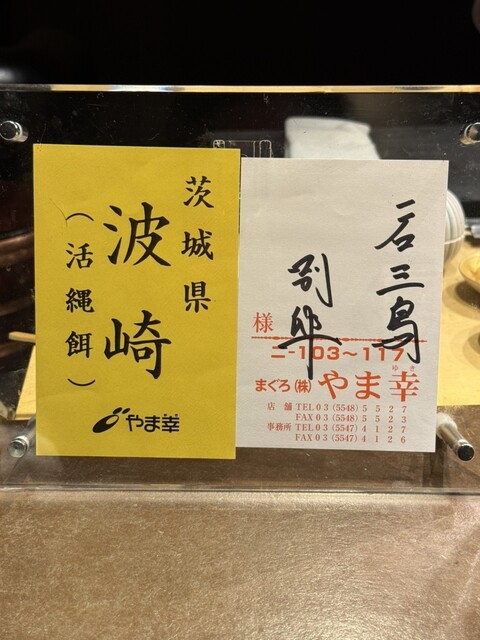 茨城県
波崎
（活縄餌）
やま幸
様
二-103〜117
ゆき
まぐろ(株)やま幸
店舗 TEL 03 (5548) 5527
FAX 03 (5548) 5523
事務所 TEL 03 (5547) 4127
FAX 03 (5547) 4126